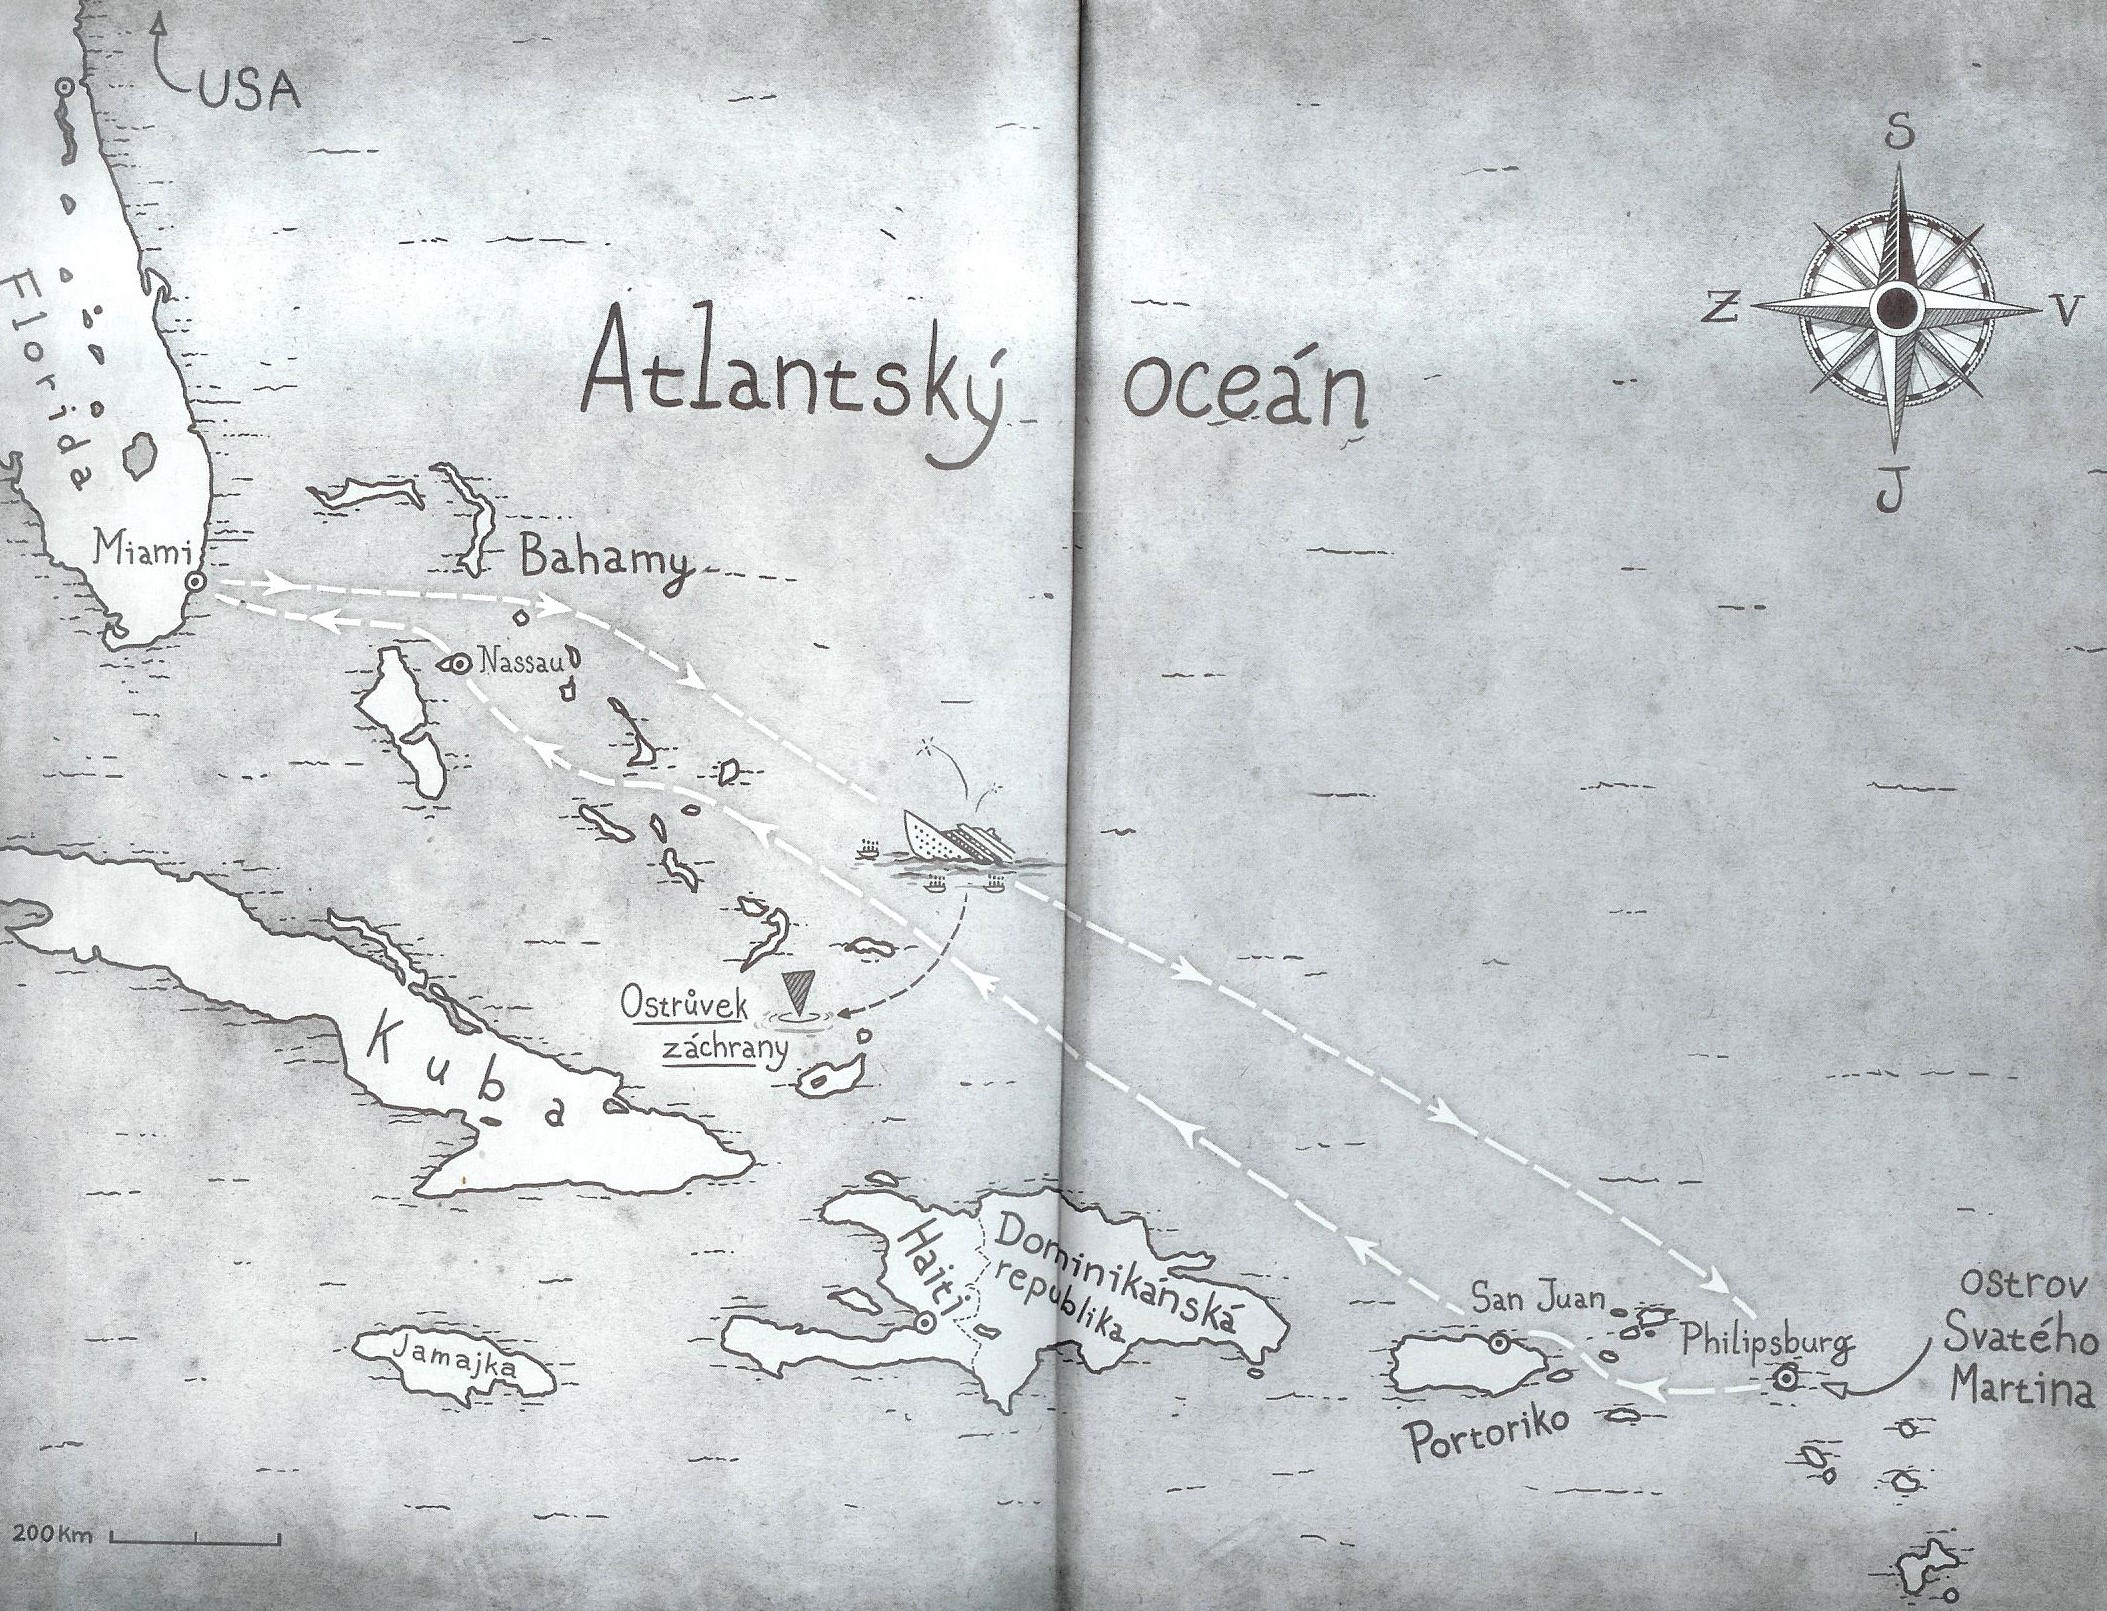 USA
S
Z
V
J
Florida
Atlantský oceán
Miami
Bahamy
Nassau
Ostrůvek
záchrany
Kuba
Haiti
Dominikánská
republika
Jamajka
San Juan
Philipsburg
Portoriko
ostrov
Svatého
Martina
200Km